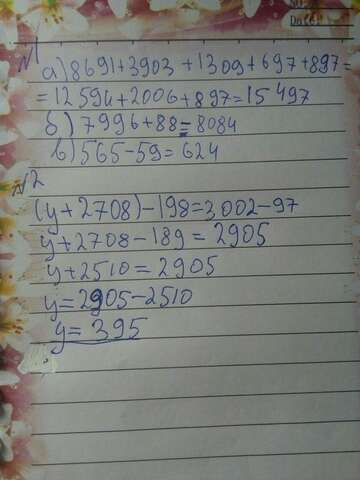 №1
а) 8691+3903+1309+697+897=
=12594+2006+897=15497
б) 7996+88=8084
в) 565-59=624
№2
(y+2708)-198=3002-97
y+2708-189=2905
y+2510=2905
y=2905-2510
y=395